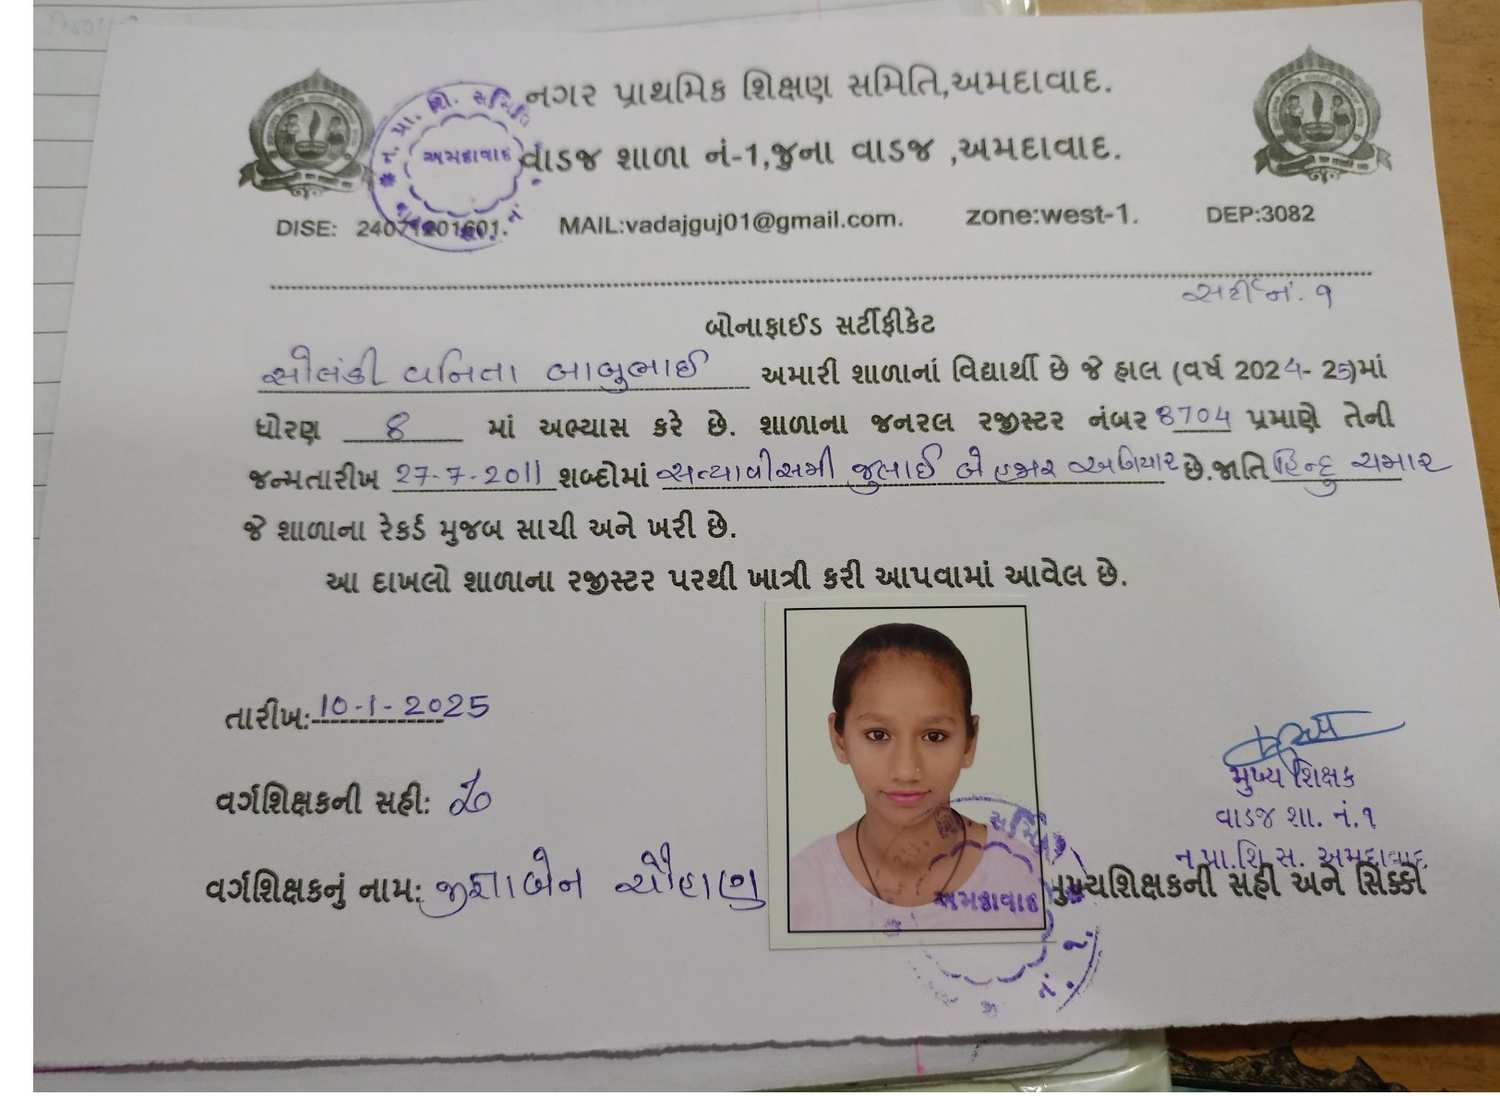 નગર પ્રાથમિક શિક્ષણ સમિતિ,અમદાવાદ.
વાડજ શાળા નં-1,જુના વાડજ ,અમદાવાદ.
ન. પ્રા. શિ. સમિતિ
અમદાવાદ
DISE: 24071201601. MAIL:vadajguj01@gmail.com. zone:west-1. DEP:3082
સર્ટી નં. ૧
બોનાફાઈડ સર્ટીફીકેટ
સોલંકી વનિતા બાબુભાઈ અમારી શાળાનાં વિદ્યાર્થી છે જે હાલ (વર્ષ 2024-25)માં
ધોરણ 8 માં અભ્યાસ કરે છે. શાળાના જનરલ રજીસ્ટર નંબર 8704 પ્રમાણે તેની
જન્મતારીખ 27-7-2011 શબ્દોમાં સત્યાવીસમી જુલાઈ બે હજાર અગિયાર છે.જાતિ હિન્દુ ચમાર
જે શાળાના રેકર્ડ મુજબ સાચી અને ખરી છે.
આ દાખલો શાળાના રજીસ્ટર પરથી ખાત્રી કરી આપવામાં આવેલ છે.
તારીખ: 10-1-2025
મુખ્ય શિક્ષક
વર્ગશિક્ષકની સહી:
વાડજ શા. નં.૧
ન.પ્રા.શિ.સ. અમદાવાદ
વર્ગશિક્ષકનું નામ: જીજ્ઞાબેન ચૌહાણ
મુખ્યશિક્ષકની સહી અને સિક્કો
અમદાવાદ